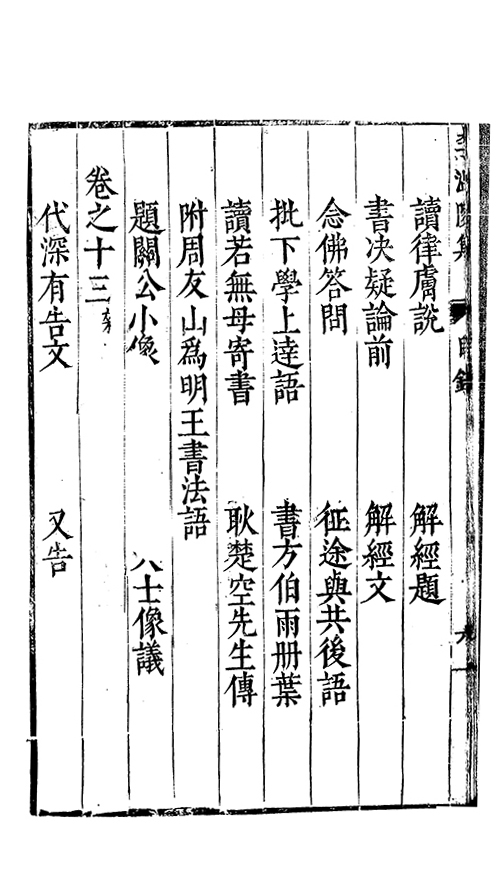 讀律膚說 解經題
書决疑論前 解經文
念佛答問 征途與共後語
批下學上逹語 書方伯雨册葉
讀若無母寄書 耿楚空先生傳
附周友山爲明王書法語
題關公小像 士像議
卷之十三
代深有告文 又告